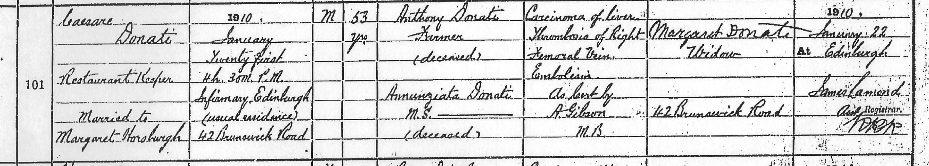 101
Caesare
Donati
Restaurant Keeper
Married to
Margaret Horsburgh
1910.
January
Twenty first
4h. 30m. P.M.
Infirmary, Edinburgh
(usual residence)
42 Brunswick Road
M
53
yrs
Anthony Donati
Farmer
(deceased)
Annunziata Donati
M.S.
(deceased)
Carcinoma of liver
Thrombosis of Right
Femoral Vein
Embolism
As Cert by
A Gibson
M.B.
Margaret Donati
Widow
42 Brunswick Road
1910.
January 22
At Edinburgh
James Lamond
Asst. Registrar.